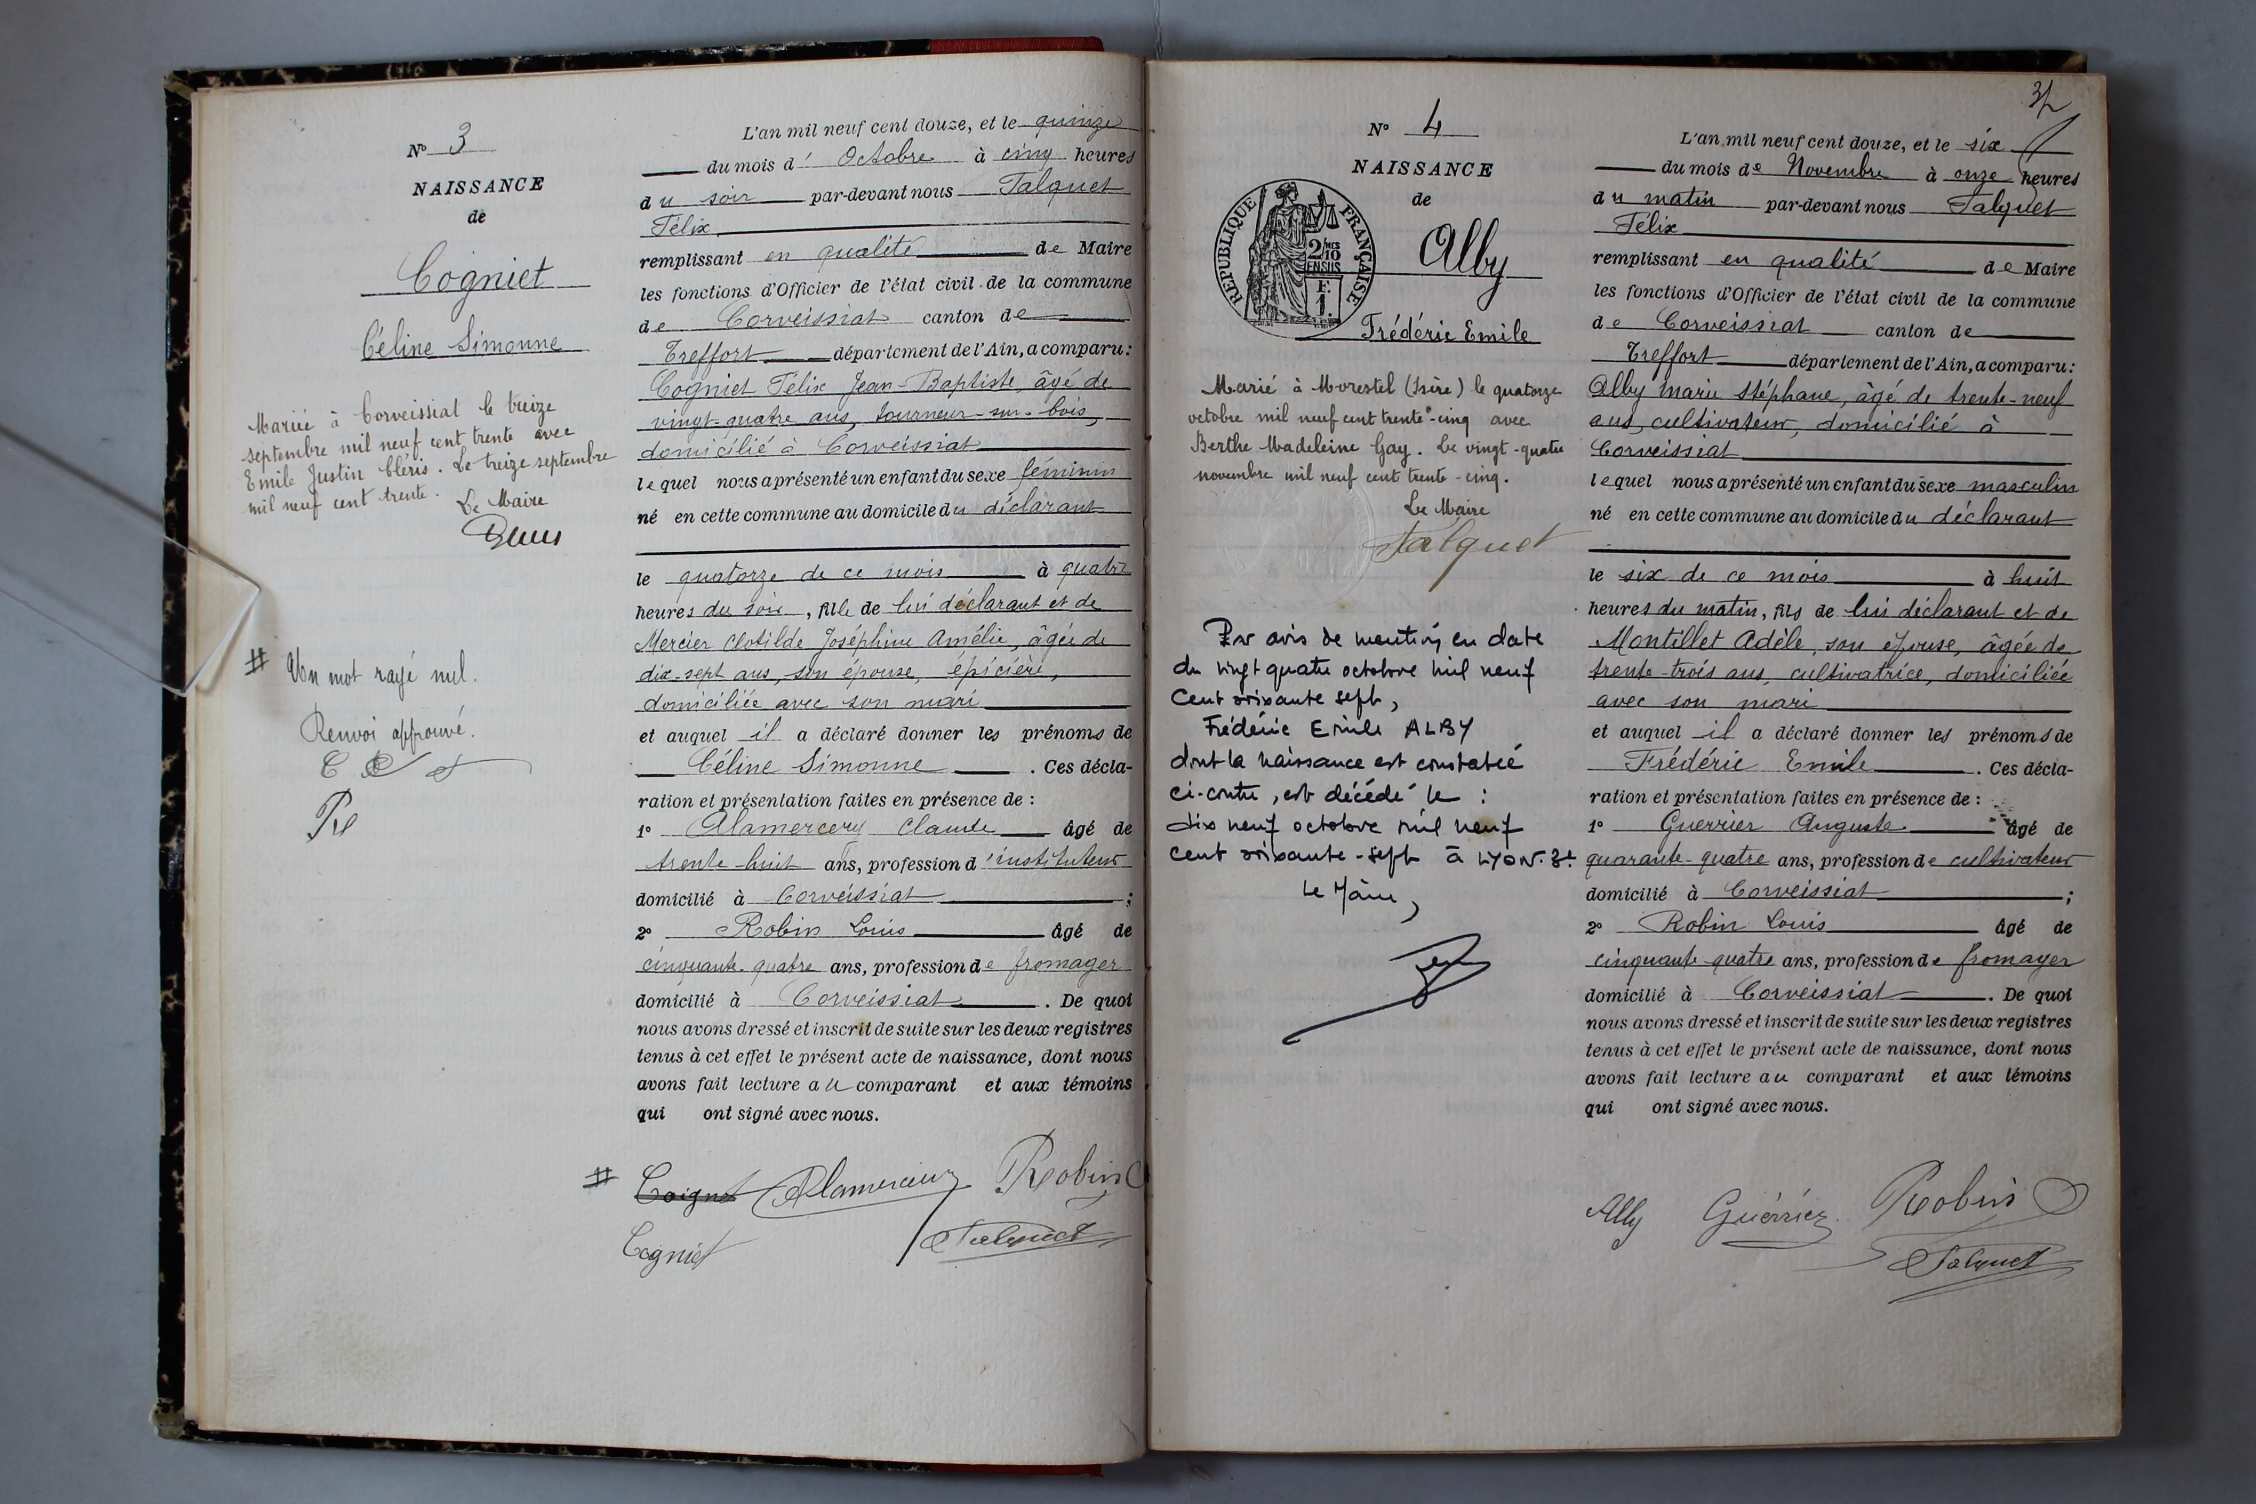 N° 3
NAISSANCE
de
Cogniet
Céline Simonne
Mariée à Corveissiat le treize
septembre mil neuf cent trente avec
Emile Justin Cléris. Le treize septembre
mil neuf cent trente.
Le Maire
# Un mot rayé nul.
Renvoi approuvé.
L'an mil neuf cent douze, et le quinze
du mois d' Octobre à cinq heures
du soir par-devant nous Talquet
Félix
remplissant en qualité de Maire
les fonctions d'Officier de l'état civil de la commune
de Corveissiat canton de
Treffort département de l'Ain, a comparu :
Cogniet Félix Jean-Baptiste, âgé de
vingt-quatre ans, tourneur-sur-bois,
domicilié à Corveissiat
lequel nous a présenté un enfant du sexe féminin
né en cette commune au domicile du déclarant
le quatorze de ce mois à quatre
heures du soir, fille de lui déclarant et de
Mercier Clotilde Joséphine Amélie, âgée de
dix-sept ans, son épouse, épicière,
domiciliée avec son mari
et auquel il a déclaré donner les prénoms de
Céline Simonne . Ces décla-
ration et présentation faites en présence de :
1° Alamercery Claude âgé de
trente-huit ans, profession d'instituteur
domicilié à Corveissiat ;
2° Robin Louis âgé de
cinquante-quatre ans, profession de fromager
domicilié à Corveissiat . De quoi
nous avons dressé et inscrit de suite sur les deux registres
tenus à cet effet le présent acte de naissance, dont nous
avons fait lecture au comparant et aux témoins
qui ont signé avec nous.
# Coignet Alamercery Robin
Cogniet Talquet
N° 4
NAISSANCE
de
RÉPUBLIQUE FRANÇAISE
2/10 MES
EN SUS
F.
1.
Alby
Frédéric Emile
Marié à Morestel (Isère) le quatorze
octobre mil neuf cent trente-cinq avec
Berthe Madeleine Gay. Le vingt-quatre
novembre mil neuf cent trente-cinq.
Le Maire
Talquet
Par avis de mention en date
du vingt quatre octobre mil neuf
cent soixante sept,
Frédéric Emile ALBY
dont la naissance est constatée
ci-contre, est décédé le :
dix neuf octobre mil neuf
cent soixante-sept à LYON. 3e
Le Maire,
L'an mil neuf cent douze, et le six
du mois de Novembre à onze heures
du matin par-devant nous Talquet
Félix
remplissant en qualité de Maire
les fonctions d'Officier de l'état civil de la commune
de Corveissiat canton de
Treffort département de l'Ain, a comparu :
Alby Marie Stéphane, âgé de trente-neuf
ans, cultivateur, domicilié à
Corveissiat
lequel nous a présenté un enfant du sexe masculin
né en cette commune au domicile du déclarant
le six de ce mois à huit
heures du matin, fils de lui déclarant et de
Montillet Adèle, son épouse, âgée de
trente-trois ans, cultivatrice, domiciliée
avec son mari
et auquel il a déclaré donner les prénoms de
Frédéric Emile . Ces décla-
ration et présentation faites en présence de :
1° Guerrier Auguste âgé de
quarante-quatre ans, profession de cultivateur
domicilié à Corveissiat ;
2° Robin Louis âgé de
cinquante-quatre ans, profession de fromager
domicilié à Corveissiat . De quoi
nous avons dressé et inscrit de suite sur les deux registres
tenus à cet effet le présent acte de naissance, dont nous
avons fait lecture au comparant et aux témoins
qui ont signé avec nous.
Alby Guerrier Robin
Talquet